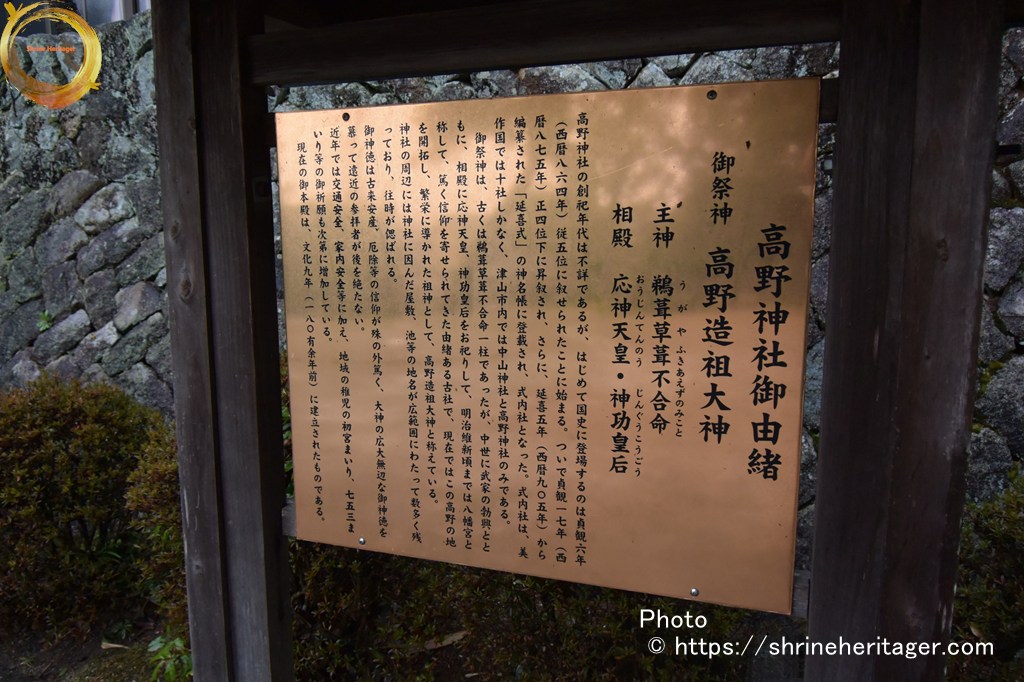 高野神社御由緒
御祭神 高野造祖大神
主神 鵜葺草葺不合命
うがやふきあえずのみこと
相殿 応神天皇・神功皇后
おうじんてんのう じんぐうこうごう
高野神社の創祀年代は不詳であるが、はじめて国史に登場するのは貞観六年
(西暦八六四年)従五位に叙せられたことに始まる。ついで貞観一七年(西
暦八七五年)正四位下に昇叙され、さらに、延喜五年(西暦九〇五年)から
編纂された「延喜式」の神名帳に登載され、式内社となった。式内社は、美
作国では十社しかなく、津山市内では中山神社と高野神社のみである。
御祭神は、古くは鵜葺草葺不合命一柱であったが、中世に武家の勃興とと
もに、相殿に応神天皇、神功皇后をお祀りして、明治維新頃までは八幡宮と
称して、篤く信仰を寄せられてきた由緒ある古社で、現在ではこの高野の地
を開拓し、繁栄に導かれた祖神として、高野造祖大神と称えている。
神社の周辺には神社に因んだ屋敷、池等の地名が広範囲にわたって数多く残
っており、往時が偲ばれる。
御神徳は古来安産、厄除等の信仰が殊の外篤く、大神の広大無辺な御神徳を
慕って遠近の参拝者が後を絶たない。
近年では交通安全、家内安全等に加え、地域の稚児の初宮まいり、七五三ま
いり等の御祈願も次第に増加している。
現在の御本殿は、文化九年(一八〇有余年前)に建立されたものである。
Shrine Heritager
Photo
© https://shrineheritager.com